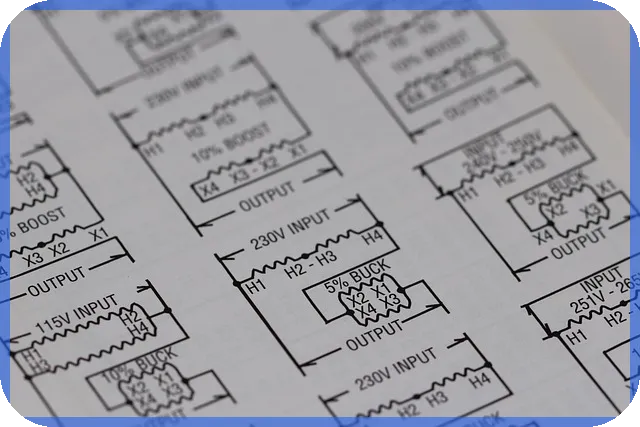 OUTPUT
230V INPUT
H1 H2 H3 H4
10% BOOST
X4 X3 - X2 X1
OUTPUT
10% BOOST
X4 X3 X2 X1
OUTPUT
INPUT
240V - 250V
H1 H2 - H3 H4
5% BUCK
X2 X1
X4 X3
OUTPUT
H2
H4
% BOOST
X3 X2 X1
OUTPUT
115V INPUT
H1 H2
H3 H4
10% BUCK
X2 X1
X4 X3
230V INPUT
H1 H2 - H3 H4
5% BUCK
X2 X1
X4 X3
OUTPUT
230V INPUT
H2 H3 H4
INPUT
251V - 265
H1 H2 -